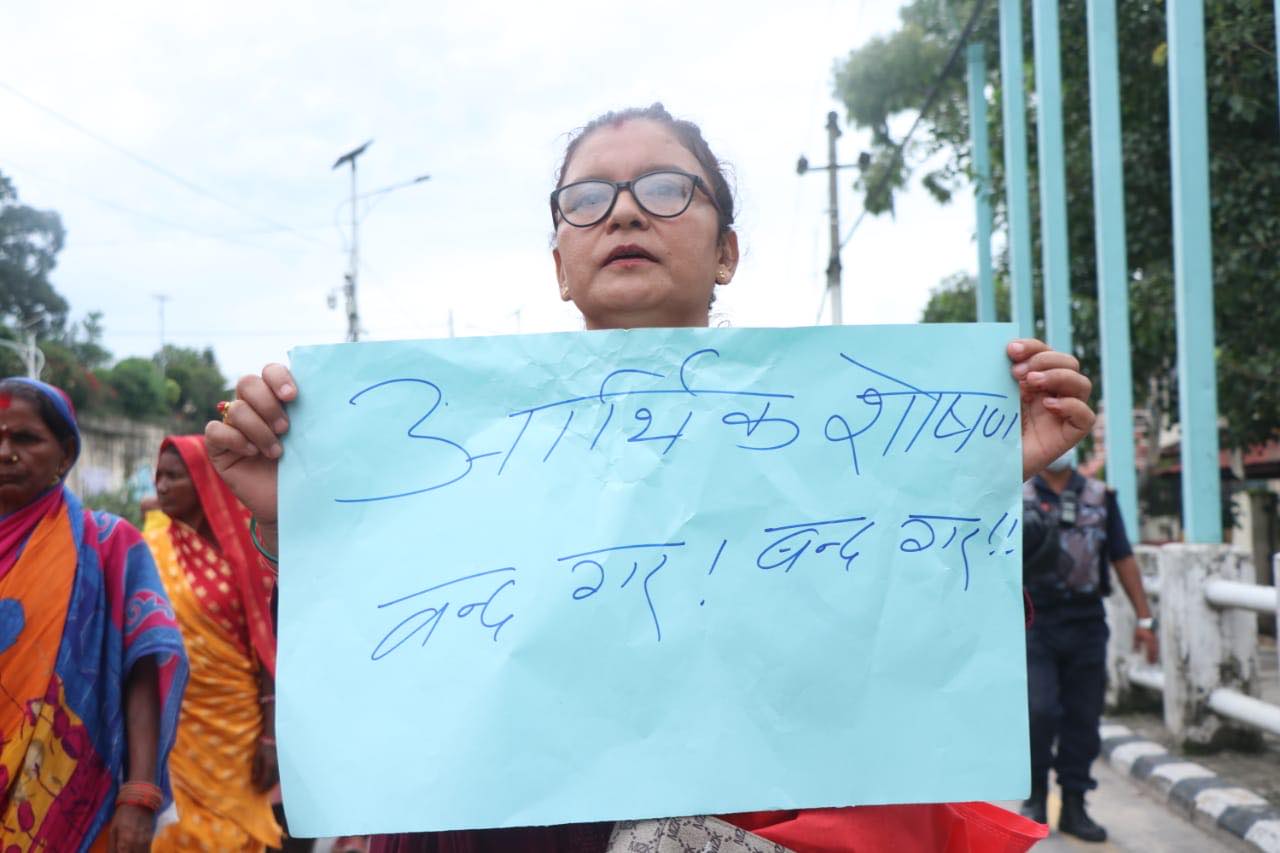 आर्थिक शोषण
बन्द गर! बन्द गर!!